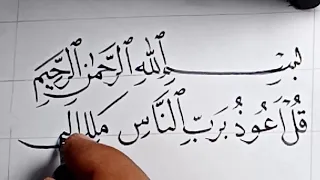 بسْمِ اللهِ الرَّحْمٰنِ الرَّحِيْمِ
قُلْ اَعُوْذُ بِرَبِّ النَّاسِ مَلِكِ